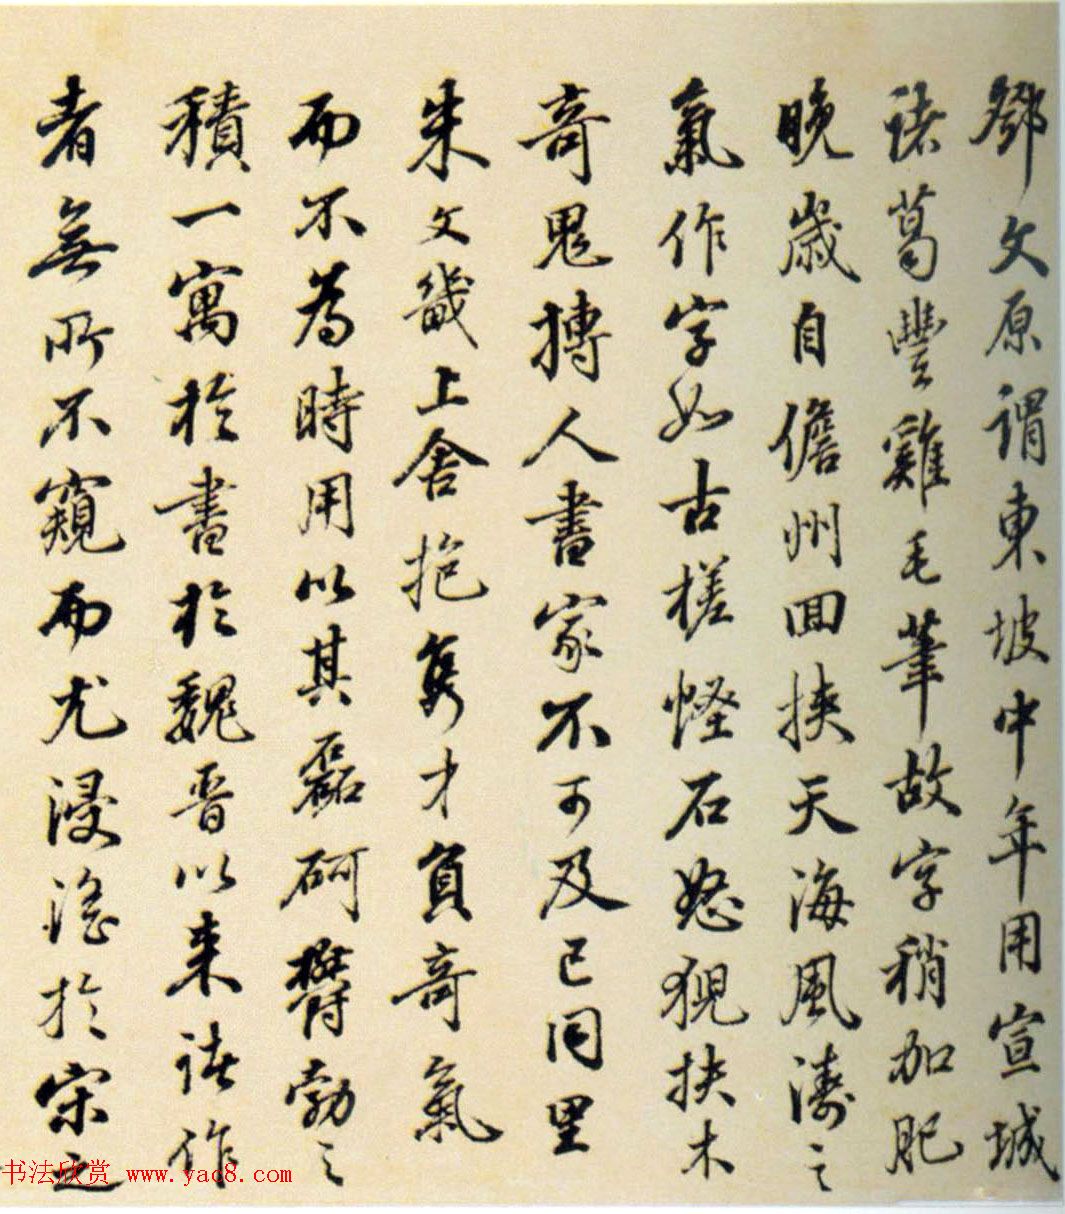 鄧文原謂東坡中年用宣城
諸葛豐雞毛筆故字稍加肥
晚歲自儋州回挾天海風濤之
氣作字如古槎怪石怒猊抉木
奇鬼搏人書家不可及已同里
朱文畿上舍抱雋才負奇氣
而不為時用以其磊砢欝勃之
積一寓於書於魏晋以来諸作
者無所不窺而尤浸淫於宋之
书法欣赏 www.yac8.com